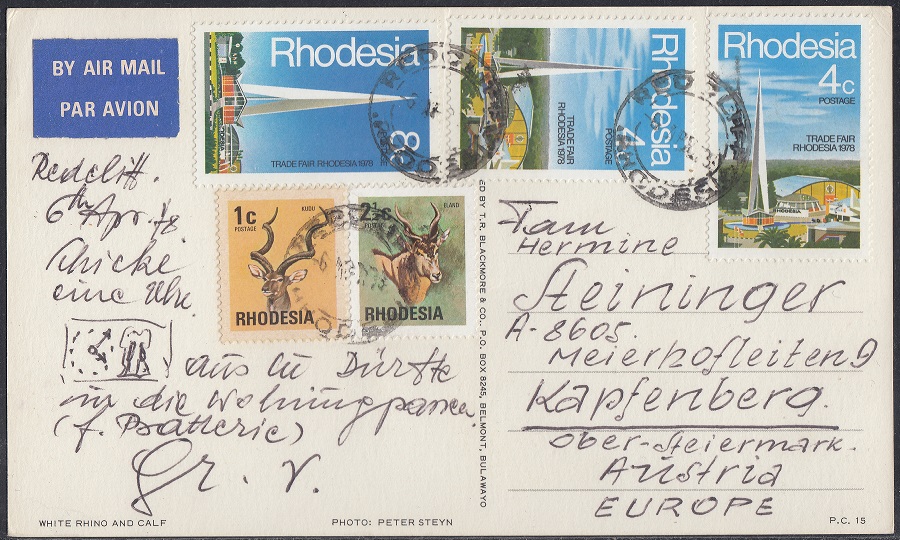 BY AIR MAIL
PAR AVION
Rhodesia
8c
TRADE FAIR RHODESIA 1978
Rhodesia
4c
POSTAGE
TRADE FAIR
RHODESIA 1978
Rhodesia
4c
POSTAGE
TRADE FAIR
RHODESIA 1978
RHODESIA
1c
POSTAGE
KUDU
RHODESIA
2½c
ELAND
RHODESIA
Redcliff.
6th Apr. 78
Schicke
eine Uhr
aus zu Dürfte
in die Wohnung passen
(f. Batterie)
Gr. v.
ED BY T.R. BLACKMORE & CO., P.O. BOX 8245, BELMONT, BULAWAYO
Frau
Hermine
Steininger
A-8605.
Meierhofleiten 9
Kapfenberg.
Ober-Steiermark.
Austria
EUROPE
WHITE RHINO AND CALF
PHOTO: PETER STEYN
P.C. 15